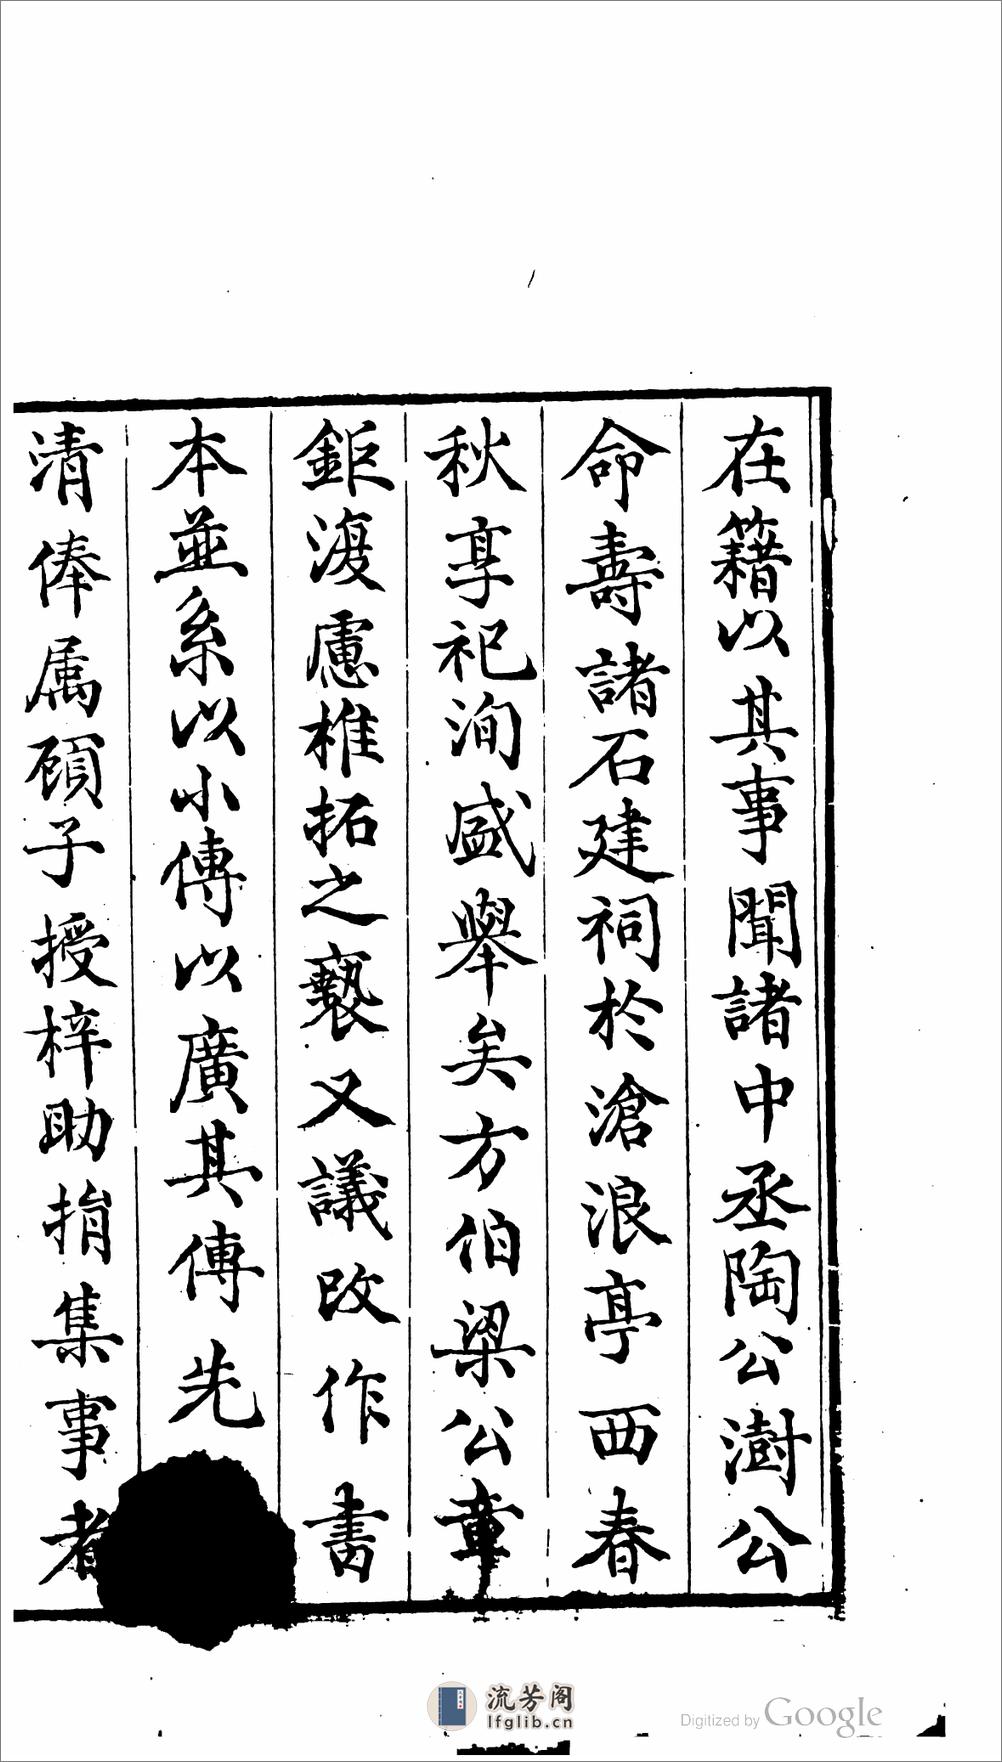 在籍以其事聞諸中丞陶公澍公
命壽諸石建祠於滄浪亭西春
秋享祀洵盛舉矣方伯梁公章
鉅復慮椎拓之褻又議改作書
本並系以小傳以廣其傳先
清俸属顧子授梓助捐集事者
流芳阁
lfglib.cn
Digitized by Google